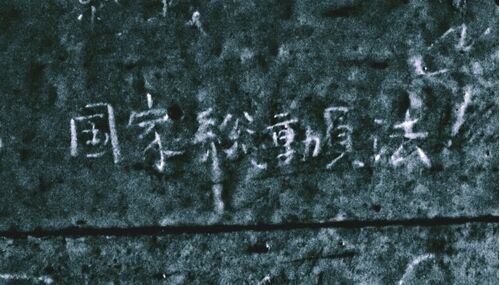 国家総動員法!